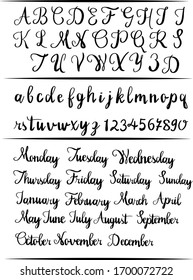 A B C D E F G H I J
K L M N O P Q R S T
U V W X Y Z
a b c d e f g h i j k l m n o p q
r s t u v w x y z 1 2 3 4 5 6 7 8 9 0
Monday Tuesday Wednesday
Thursday Friday Saturday Sunday
January February March April
May June July August September
October November December
shutterstock.com · 1700072722